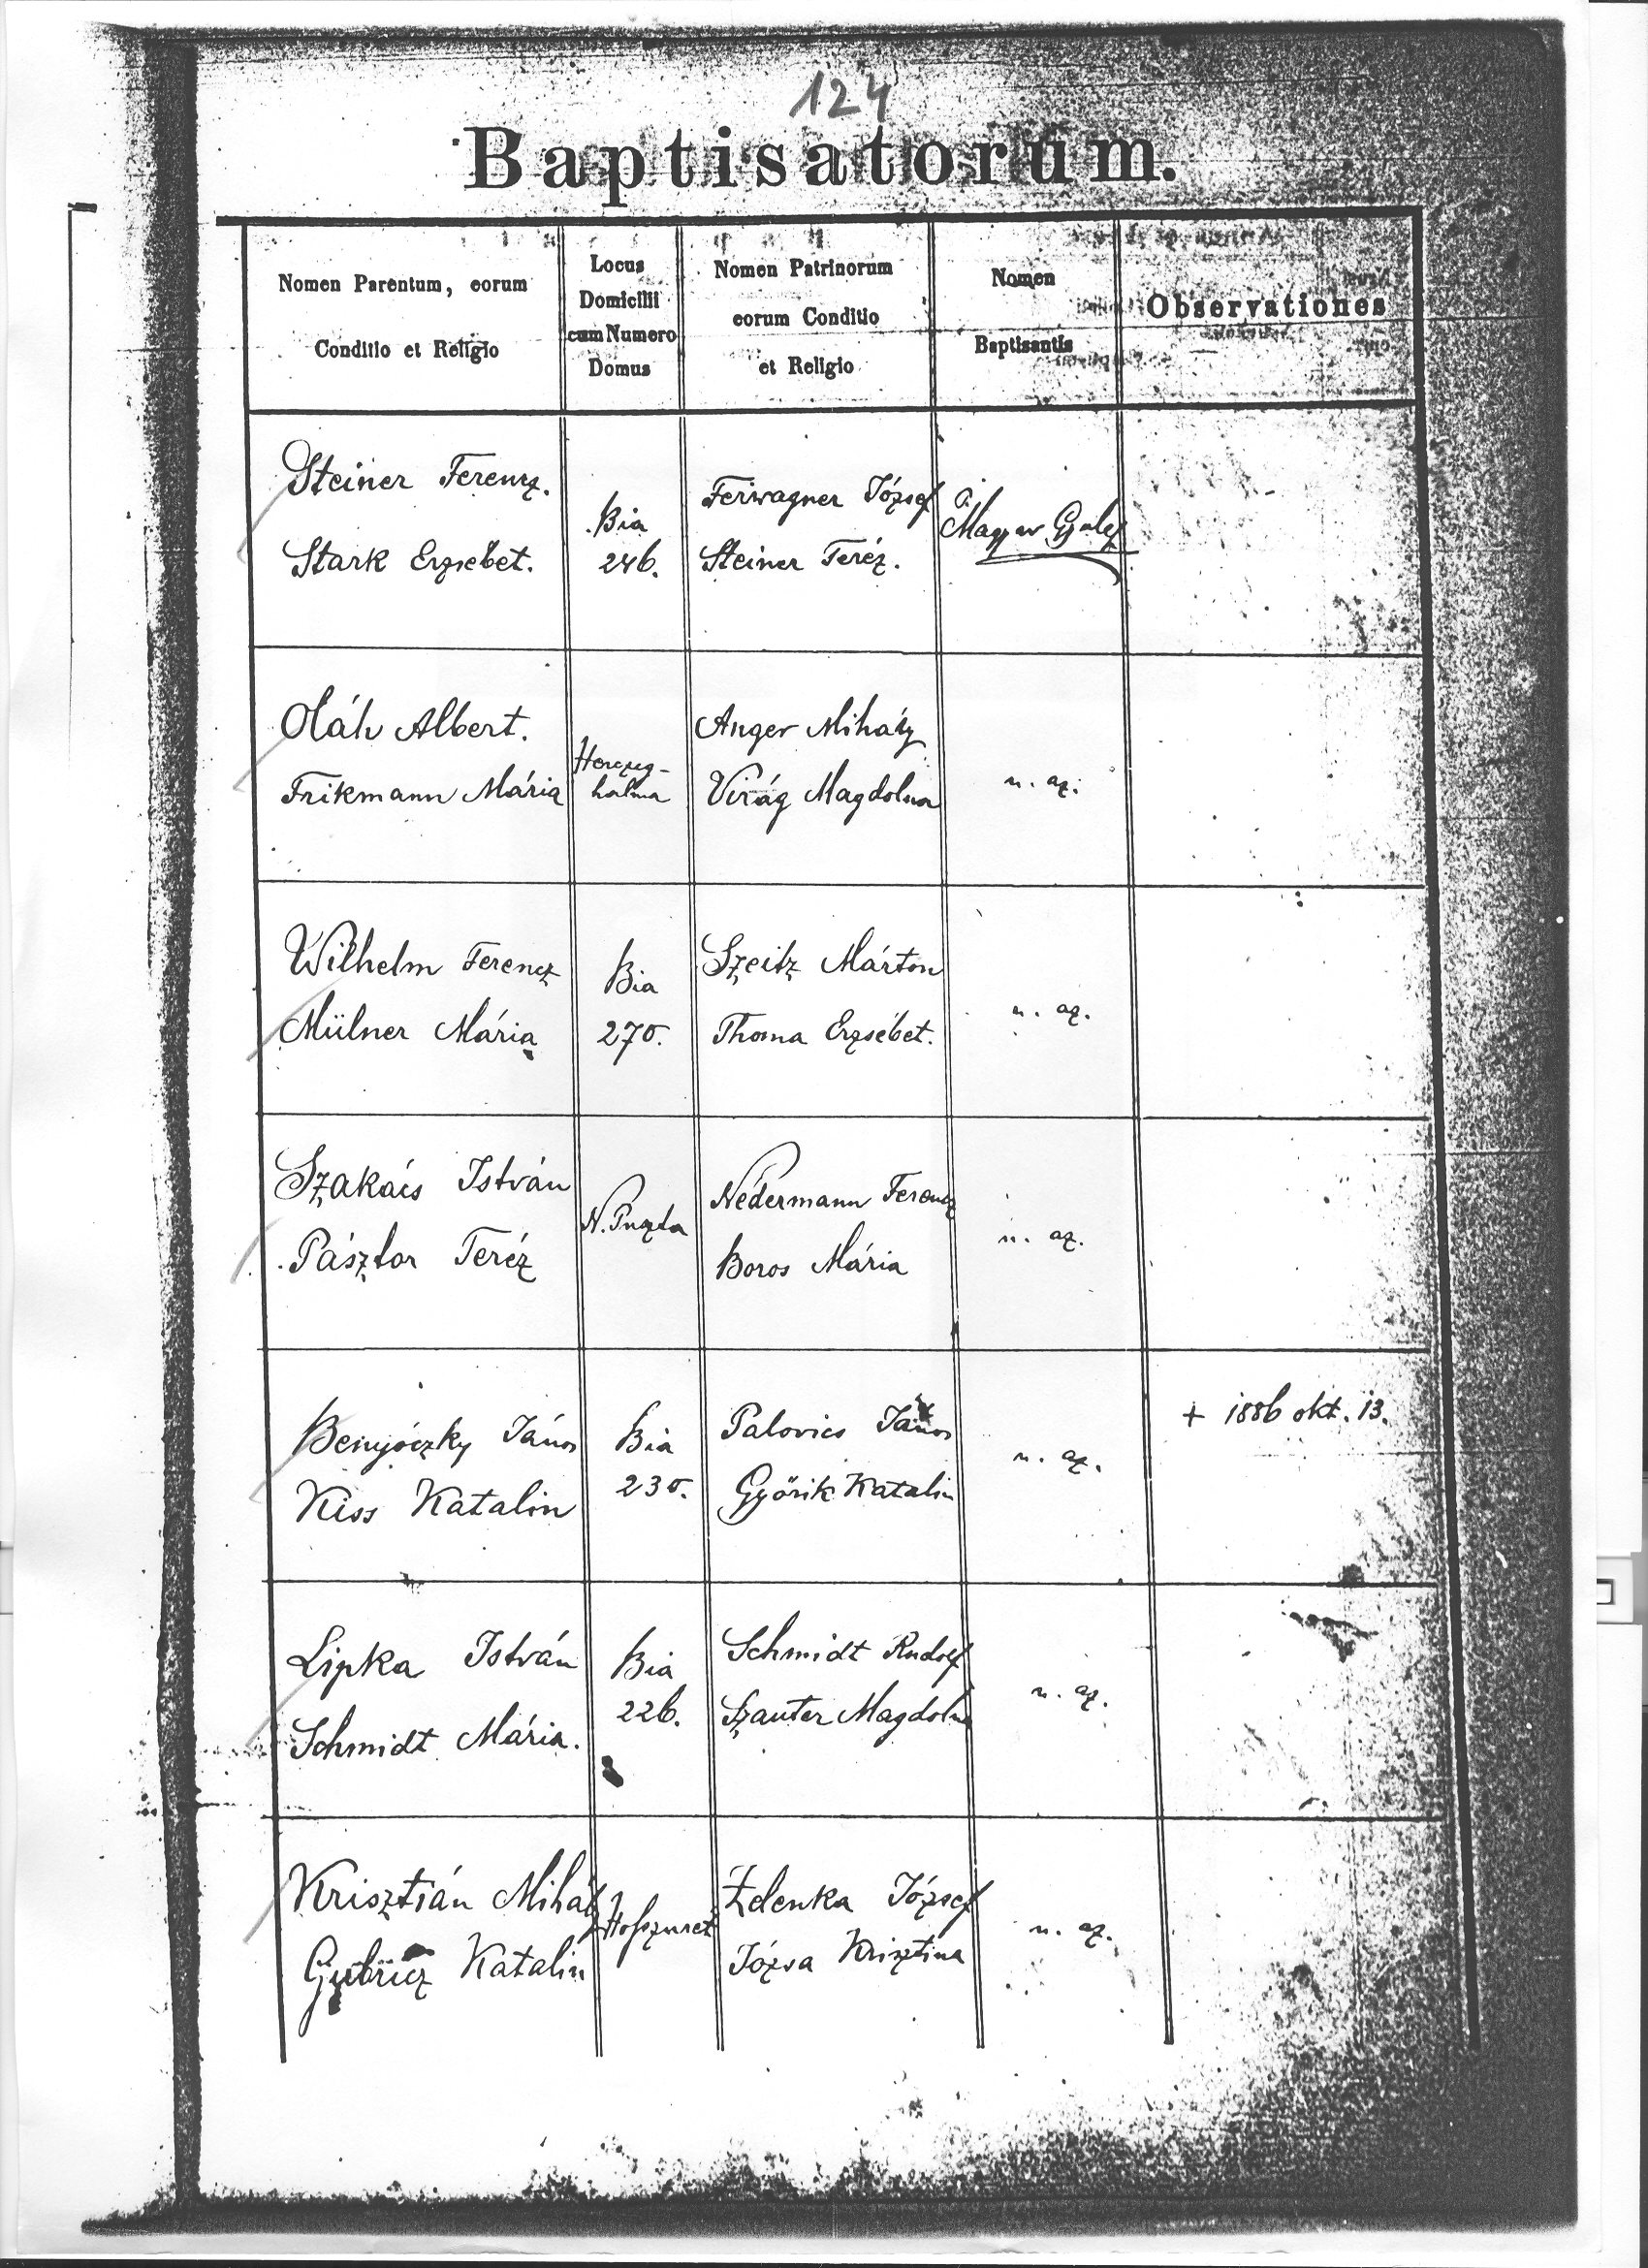 124
Baptisatorum.
Nomen Parentum, eorum
Conditio et Religio
Locus
Domicilii
cum Numero
Domus
Nomen Patrinorum
eorum Conditio
et Religio
Nomen
Baptisantis
Observationes
Steiner Ferencz.
Stark Erzsébet.
Bia
246.
Feirwagner József
Steiner Teréz.
Magyar
Oláh Albert.
Frikmann Mária
Herczeg-
halma
Anger Mihály
Virág Magdolna
u. az.
Wilhelm Ferencz
Mülner Mária
Bia
270.
Szeitz Márton
Thoma Erzsébet.
u. az.
Szakács István
Pásztor Teréz
N. Puszta
Nédermann Ferencz
Boros Mária
u. az.
Benyóczky János
Kiss Katalin
Bia
230.
Palovics János
Győrik Katalin
u. az.
+ 1886 okt. 13.
Lipka István
Schmidt Mária.
Bia
226.
Schmidt Rudolf
Szauter Magdolna
u. az.
Krisztián Mihály
Katalin
Zelenka József
Józsa Krisztina
u. az.